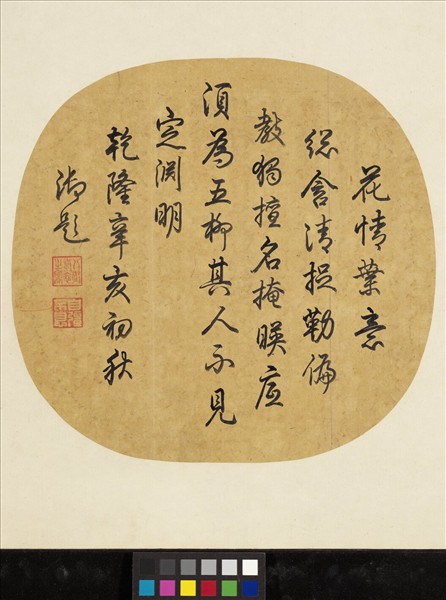 花情葉意
總含清勒偏
教獨擅名掩暎應
須為五柳其人不見
定淵明
乾隆辛亥初秋
御題